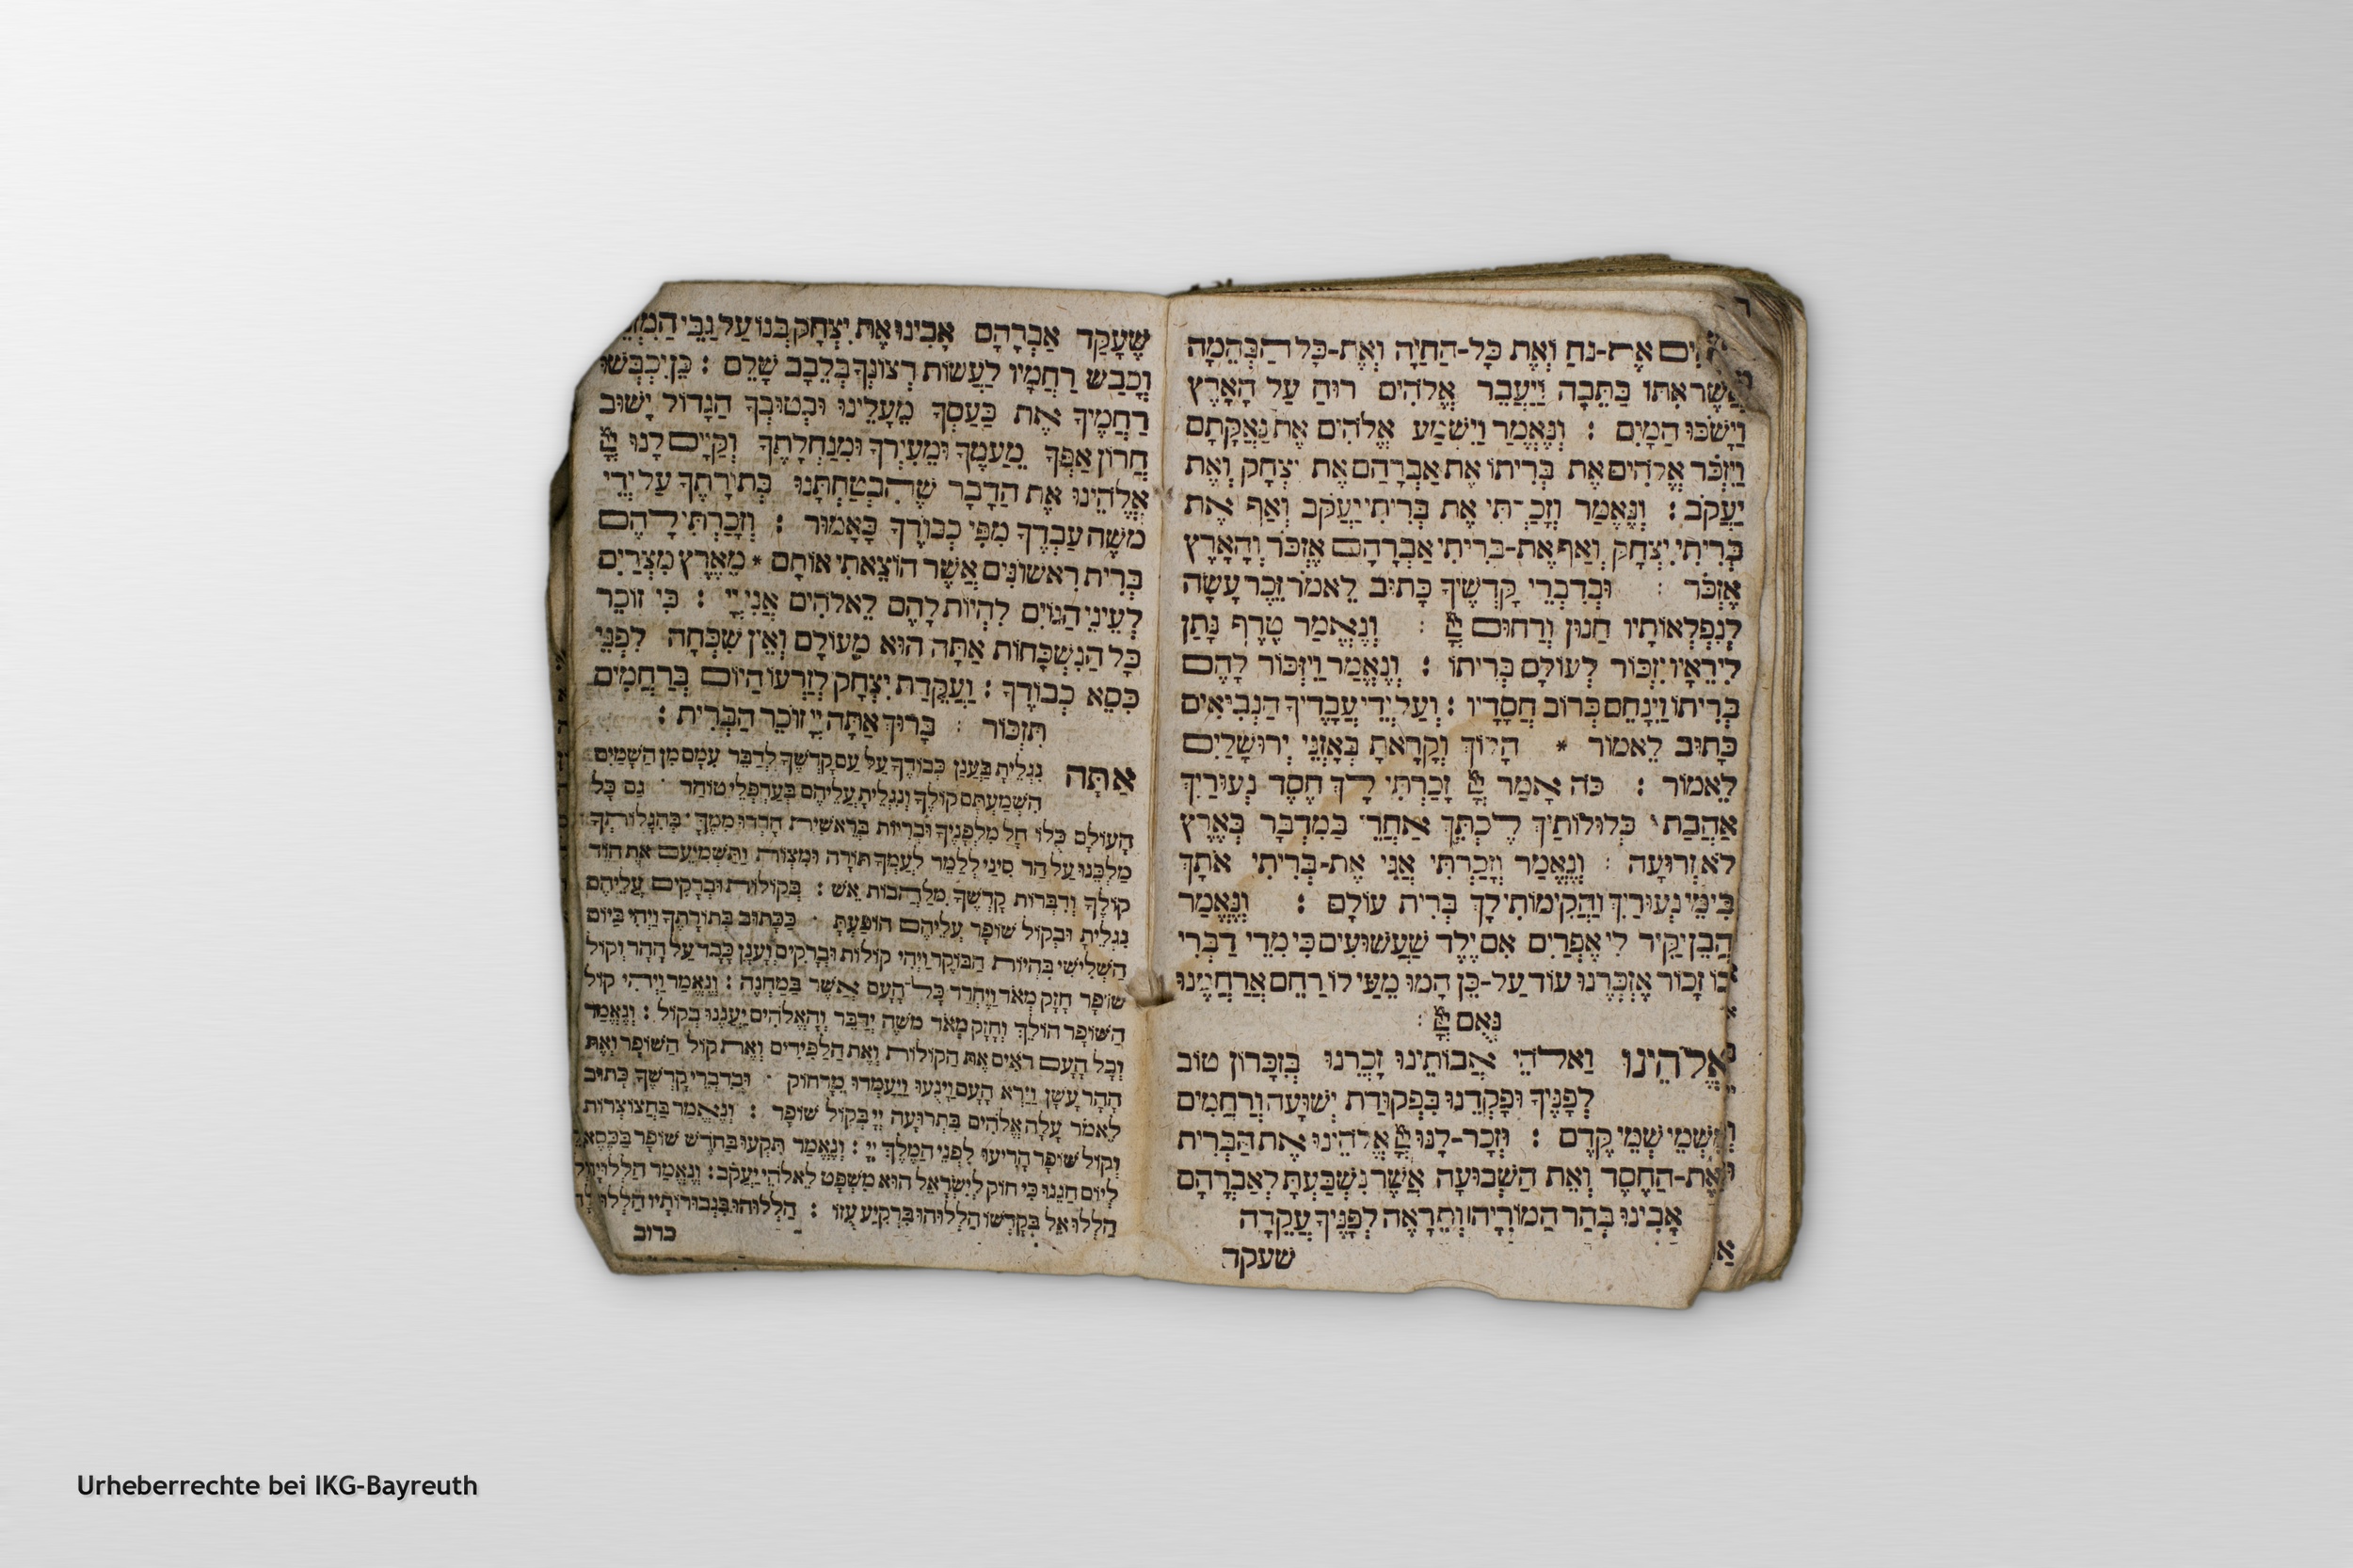 אֶת-נֹחַ וְאֵת כָּל-הַחַיָה וְאֶת-כָּל הַבְּהֵמָה
אֲשֶׁר אִתּוֹ בַּתֵּבָה וַיַּעֲבֵר אֱלֹהִים רוּחַ עַל הָאָרֶץ
וַיָשֹׁכּוּ הַמָיִם : וְנֶאֱמַר וַיִשְׁמַע אֱלֹהִים אֶת נַאֲקָתָם
וַיִזְכֹּר אֱלֹהִים אֶת בְּרִיתוֹ אֶת אַבְרָהָם אֶת יִצְחָק וְאֶת
יַעֲקֹב : וְנֶאֱמַר וְזָכַרְתִּי אֶת בְּרִיתִי יַעֲקֹב וְאַף אֶת
בְּרִיתִי יִצְחָק וְאַף אֶת-בְּרִיתִי אַבְרָהָם אֶזְכֹּר וְהָאָרֶץ
אֶזְכֹּר : וּבְדִבְרֵי קָדְשֶׁךָ כָּתוּב לֵאמֹר זֵכֶר עָשָׂה
לְנִפְלְאוֹתָיו חַנוּן וְרַחוּם יְיָ : וְנֶאֱמַר טֶרֶף נָתַן
לִירֵאָיו יִזְכּוֹר לְעוֹלָם בְּרִיתוֹ : וְנֶאֱמַר וַיִזְכּוֹר לָהֶם
בְּרִיתוֹ וַיִנָחֵם כְּרוֹב חֲסָדָיו : וְעַל יְדֵי עֲבָדֶיךָ הַנְבִיאִים
כָּתוּב לֵאמוֹר * הָלוֹךְ וְקָרָאתָ בְאָזְנֵי יְרוּשָׁלַיִם
לֵאמוֹר : כֹּה אָמַר יְיָ זָכַרְתִּי לָךְ חֶסֶד נְעוּרַיִךְ
אַהֲבַת כְּלוּלוֹתַיִךְ לֶכְתֵּךְ אַחֲרַי בַּמִדְבָּר בְּאֶרֶץ
לֹא זְרוּעָה : וְנֶאֱמַר וְזָכַרְתִּי אֲנִי אֶת-בְּרִיתִי אֹתָךְ
בִּימֵי נְעוּרַיִךְ וַהֲקִימוֹתִי לָךְ בְּרִית עוֹלָם : וְנֶאֱמַר
הֲבֵן יַקִיר לִי אֶפְרַיִם אִם יֶלֶד שַׁעֲשׁוּעִים כִּי מִדֵי דַבְּרִי
בוֹ זָכוֹר אֶזְכְּרֶנוּ עוֹד עַל-כֵּן הָמוּ מֵעַי לוֹ רַחֵם אֲרַחֲמֶנוּ
נְאֻם יְיָ :
אֱלֹהֵינוּ וֵאלֹהֵי אֲבוֹתֵינוּ זָכְרֵנוּ בְּזִכָּרוֹן טוֹב
לְפָנֶיךָ וּפָקְדֵנוּ בִּפְקוּדַת יְשׁוּעָה וְרַחֲמִים
מִשְׁמֵי שְׁמֵי קֶדֶם : וּזְכָר-לָנוּ יְיָ אֱלֹהֵינוּ אֶת הַבְּרִית
וְאֶת-הַחֶסֶד וְאֵת הַשְׁבוּעָה אֲשֶׁר נִשְׁבַּעְתָּ לְאַבְרָהָם
אָבִינוּ בְּהַר הַמוֹרִיָה וְתֵרָאֶה לְפָנֶיךָ עֲקֵדָה
שעקד
שֶׁעָקַד אַבְרָהָם אָבִינוּ אֶת יִצְחָק בְּנוֹ עַל גַבֵּי
וְכָבַשׁ רַחֲמָיו לַעֲשׂוֹת רְצוֹנְךָ בְּלֵבָב שָׁלֵם : כֵּן יִכְבְּשׁוּ
רַחֲמֶיךָ אֶת כַּעַסְךָ מֵעָלֵינוּ וּבְטוּבְךָ הַגָדוֹל יָשׁוּב
חֲרוֹן אַפְּךָ מֵעַמְךָ וּמֵעִירְךָ וּמִנַחֲלָתֶךָ וְקַיֶים לָנוּ יְיָ
אֱלֹהֵינוּ אֶת הַדָבָר שֶׁהִבְטַחְתָּנוּ בְּתוֹרָתֶךָ עַל יְדֵי
מֹשֶׁה עַבְדֶךָ מִפִּי כְבוֹדֶךָ כָּאָמוּר : וְזָכַרְתִּי לָהֶם
בְּרִית רִאשׁוֹנִים אֲשֶׁר הוֹצֵאתִי אוֹתָם * מֵאֶרֶץ מִצְרַיִם
לְעֵינֵי הַגוֹיִם לִהְיוֹת לָהֶם לֵאלֹהִים אֲנִי יְיָ : כִּי זוֹכֵר
כָּל הַנִשְׁכָּחוֹת אַתָּה הוּא מֵעוֹלָם וְאֵין שִׁכְּחָה לִפְנֵי
כִּסֵא כְבוֹדֶךָ : וַעֲקֵדַת יִצְחָק לְזַרְעוֹ הַיוֹם בְּרַחֲמִים
תִּזְכּוֹר : בָּרוּךְ אַתָּה יְיָ זוֹכֵר הַבְּרִית :
אַתָּה נִגְלֵיתָ בַּעֲנַן כְּבוֹדֶךָ עַל עַם קָדְשֶׁךָ לְדַבֵּר עִמָם מִן הַשָׁמַיִם
הִשְׁמַעְתָּם קוֹלֶךָ וְנִגְלֵיתָ עֲלֵיהֶם בְּעַרְפְלֵי טוֹהַר גַם כָּל
הָעוֹלָם כֻּלוֹ חָל מִלְפָנֶיךָ וּבְרִיוֹת בְּרֵאשִׁית חָרְדוּ מִמֶךָ בְּהִגָלוֹתְךָ
מַלְכֵּנוּ עַל הַר סִינַי לְלַמֵד לְעַמְךָ תּוֹרָה וּמִצְוֹת וַתַּשְׁמִיעֵם אֶת הוֹד
קוֹלֶךָ וְדִבְּרוֹת קָדְשֶׁךָ מִלַהֲבוֹת אֵשׁ : בְּקוֹלוֹת וּבְרָקִים עֲלֵיהֶם
נִגְלֵיתָ וּבְקוֹל שׁוֹפָר עֲלֵיהֶם הוֹפָעְתָּ : כַּכָּתוּב בְּתוֹרָתֶךָ וַיְהִי בַיוֹם
הַשְׁלִישִׁי בִּהְיוֹת הַבּוֹקֶר וַיְהִי קוֹלוֹת וּבְרָקִים וְעָנָן כָּבֵד עַל הָהָר וְקוֹל
שׁוֹפָר חָזָק מְאֹד וַיֶחֱרַד כָּל-הָעָם אֲשֶׁר בַּמַחֲנֶה : וְנֶאֱמַר וַיְהִי קוֹל
הַשׁוֹפָר הוֹלֵךְ וְחָזֵק מְאֹד מֹשֶׁה יְדַבֵּר וְהָאֱלֹהִים יַעֲנֶנוּ בְקוֹל : וְנֶאֱמַר
וְכָל הָעָם רֹאִים אֶת הַקוֹלוֹת וְאֶת הַלַפִּידִים וְאֵת קוֹל הַשׁוֹפָר וְאֶת
הָהָר עָשֵׁן וַיַרְא הָעָם וַיָנֻעוּ וַיַעַמְדוּ מֵרָחוֹק : וּבְדִבְרֵי קָדְשֶׁךָ כָּתוּב
לֵאמֹר עָלָה אֱלֹהִים בִּתְרוּעָה יְיָ בְּקוֹל שׁוֹפָר : וְנֶאֱמַר בַּחֲצוֹצְרוֹת
וְקוֹל שׁוֹפָר הָרִיעוּ לִפְנֵי הַמֶלֶךְ יְיָ : וְנֶאֱמַר תִּקְעוּ בַחֹדֶשׁ שׁוֹפָר בַּכֶּסֶא
לְיוֹם חַגֵנוּ כִּי חוֹק לְיִשְׂרָאֵל הוּא מִשְׁפָּט לֵאלֹהֵי יַעֲקֹב : וְנֶאֱמַר הַלְלוּיָהּ
הַלְלוּ אֵל בְּקָדְשׁוֹ הַלְלוּהוּ בִּרְקִיעַ עֻזוֹ : הַלְלוּהוּ בִּגְבוּרוֹתָיו הַלְלוּהוּ
כרוב
Urheberrechte bei IKG-Bayreuth